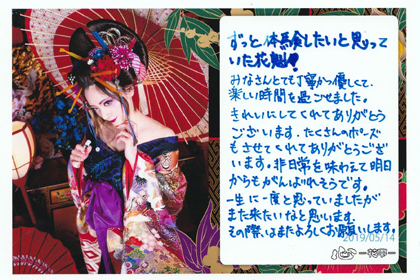 ずっと体験したいと思って
いた花魁♥
みなさんとても丁寧かつ優しくて、
楽しい時間を過ごせました。
きれいにしてくれてありがとう
ございます。たくさんのポーズ
もさせてくれてありがとうござ
います。非日常を味わえて明日
からもがんばれそうです。
一生に一度と思っていましたが
また来たいなと思います。
その際はまたよろしくお願いします。
2019/05/14
心 -花雫-